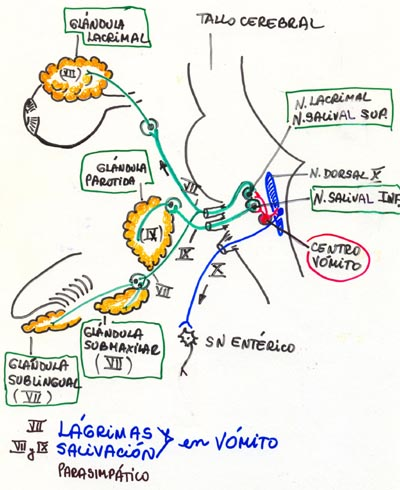 GLÁNDULA
LACRIMAL
TALLO CEREBRAL
VII
N. LACRIMAL
N. SALIVAL SUP.
GLÁNDULA
PARÓTIDA
VII
N. DORSAL X
N. SALIVAL INF.
IX
IX
CENTRO
VÓMITO
VII
X
SN ENTÉRICO
GLÁNDULA
SUBMAXILAR
(VII)
GLÁNDULA
SUBLINGUAL
(VII)
VII LÁGRIMAS
VII y IX SALIVACIÓN
en VÓMITO
PARASIMPÁTICO